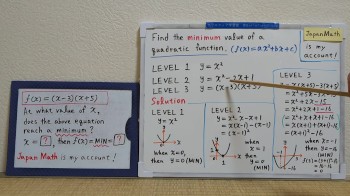 f(x) = (x-3)(x+5)
At what value of x,
does the above equation
reach a minimum?
x = ? then f(x)=MIN= ?
Japan Math is my account!
Find the minimum value of a
quadratic function. (f(x)=ax²+bx+c)
JapanMath
is my
account!
LEVEL 1 y=x²
LEVEL 2 y=x²-2x+1
LEVEL 3 y=(x-3)(x+5)
Solution
LEVEL 1
y=x²
when x=0,
then y=0
(MIN)
LEVEL 2
x²-x-x+1
=x(x-1)-(x-1)
=(x-1)²
when x=1
then
y=0
(MIN)
LEVEL 3
=x(x+5)-3(x+5)
=x²+5x-3x-15
=x²+2x-15
=x²+x+x+1-16
=x(x+1)+(x+1)-16
=(x+1)²-16
when x=-1
then y=-16
(MIN)